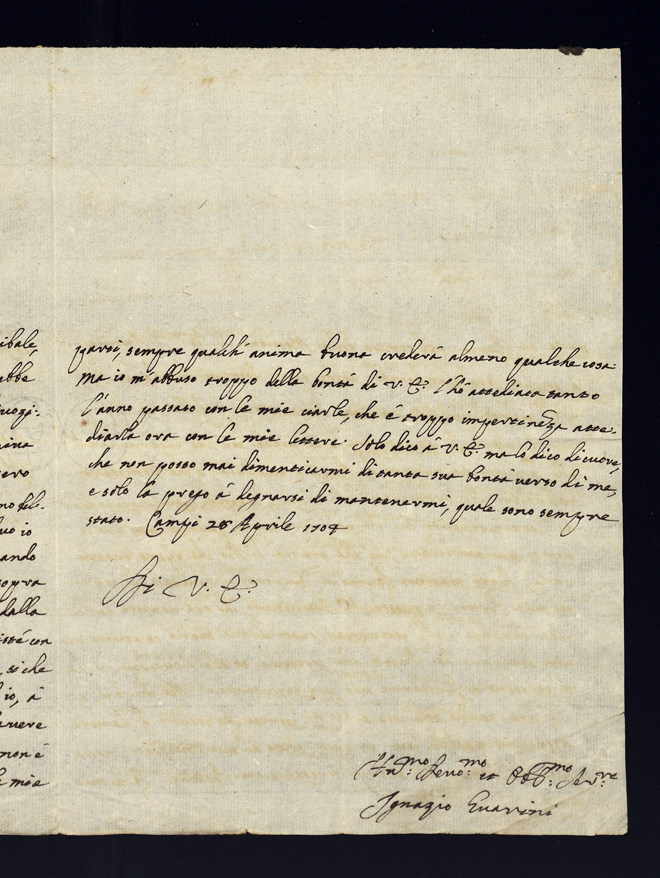 ibale,
abbe
uozi:
nina
vero
no deli-
uo io
ando
opra
dalla
isté con
, si che
io, à
avere
non è
e mie
garsi, sempre qualch' anima buona crederà almeno qualche cosa:
ma io m'abbuso troppo della bontà di V. E. l'hò attediata tanto
l'anno passato con le mie ciarle, che è troppo impertinēza atte:
diarla ora con le mie lettere. Solo dico à V. E. ma lo dico di cuore,
che non posso mai dimenticarmi di tanta sua bontà verso di me,
e solo la prego à degnarsi di mantenermi, quale sono sempre
stato. Campi 28 Aprile 1704
Di V. E.
Hum.mo Devo.mo et Obb.mo Ser.re
Ignazio Guarini